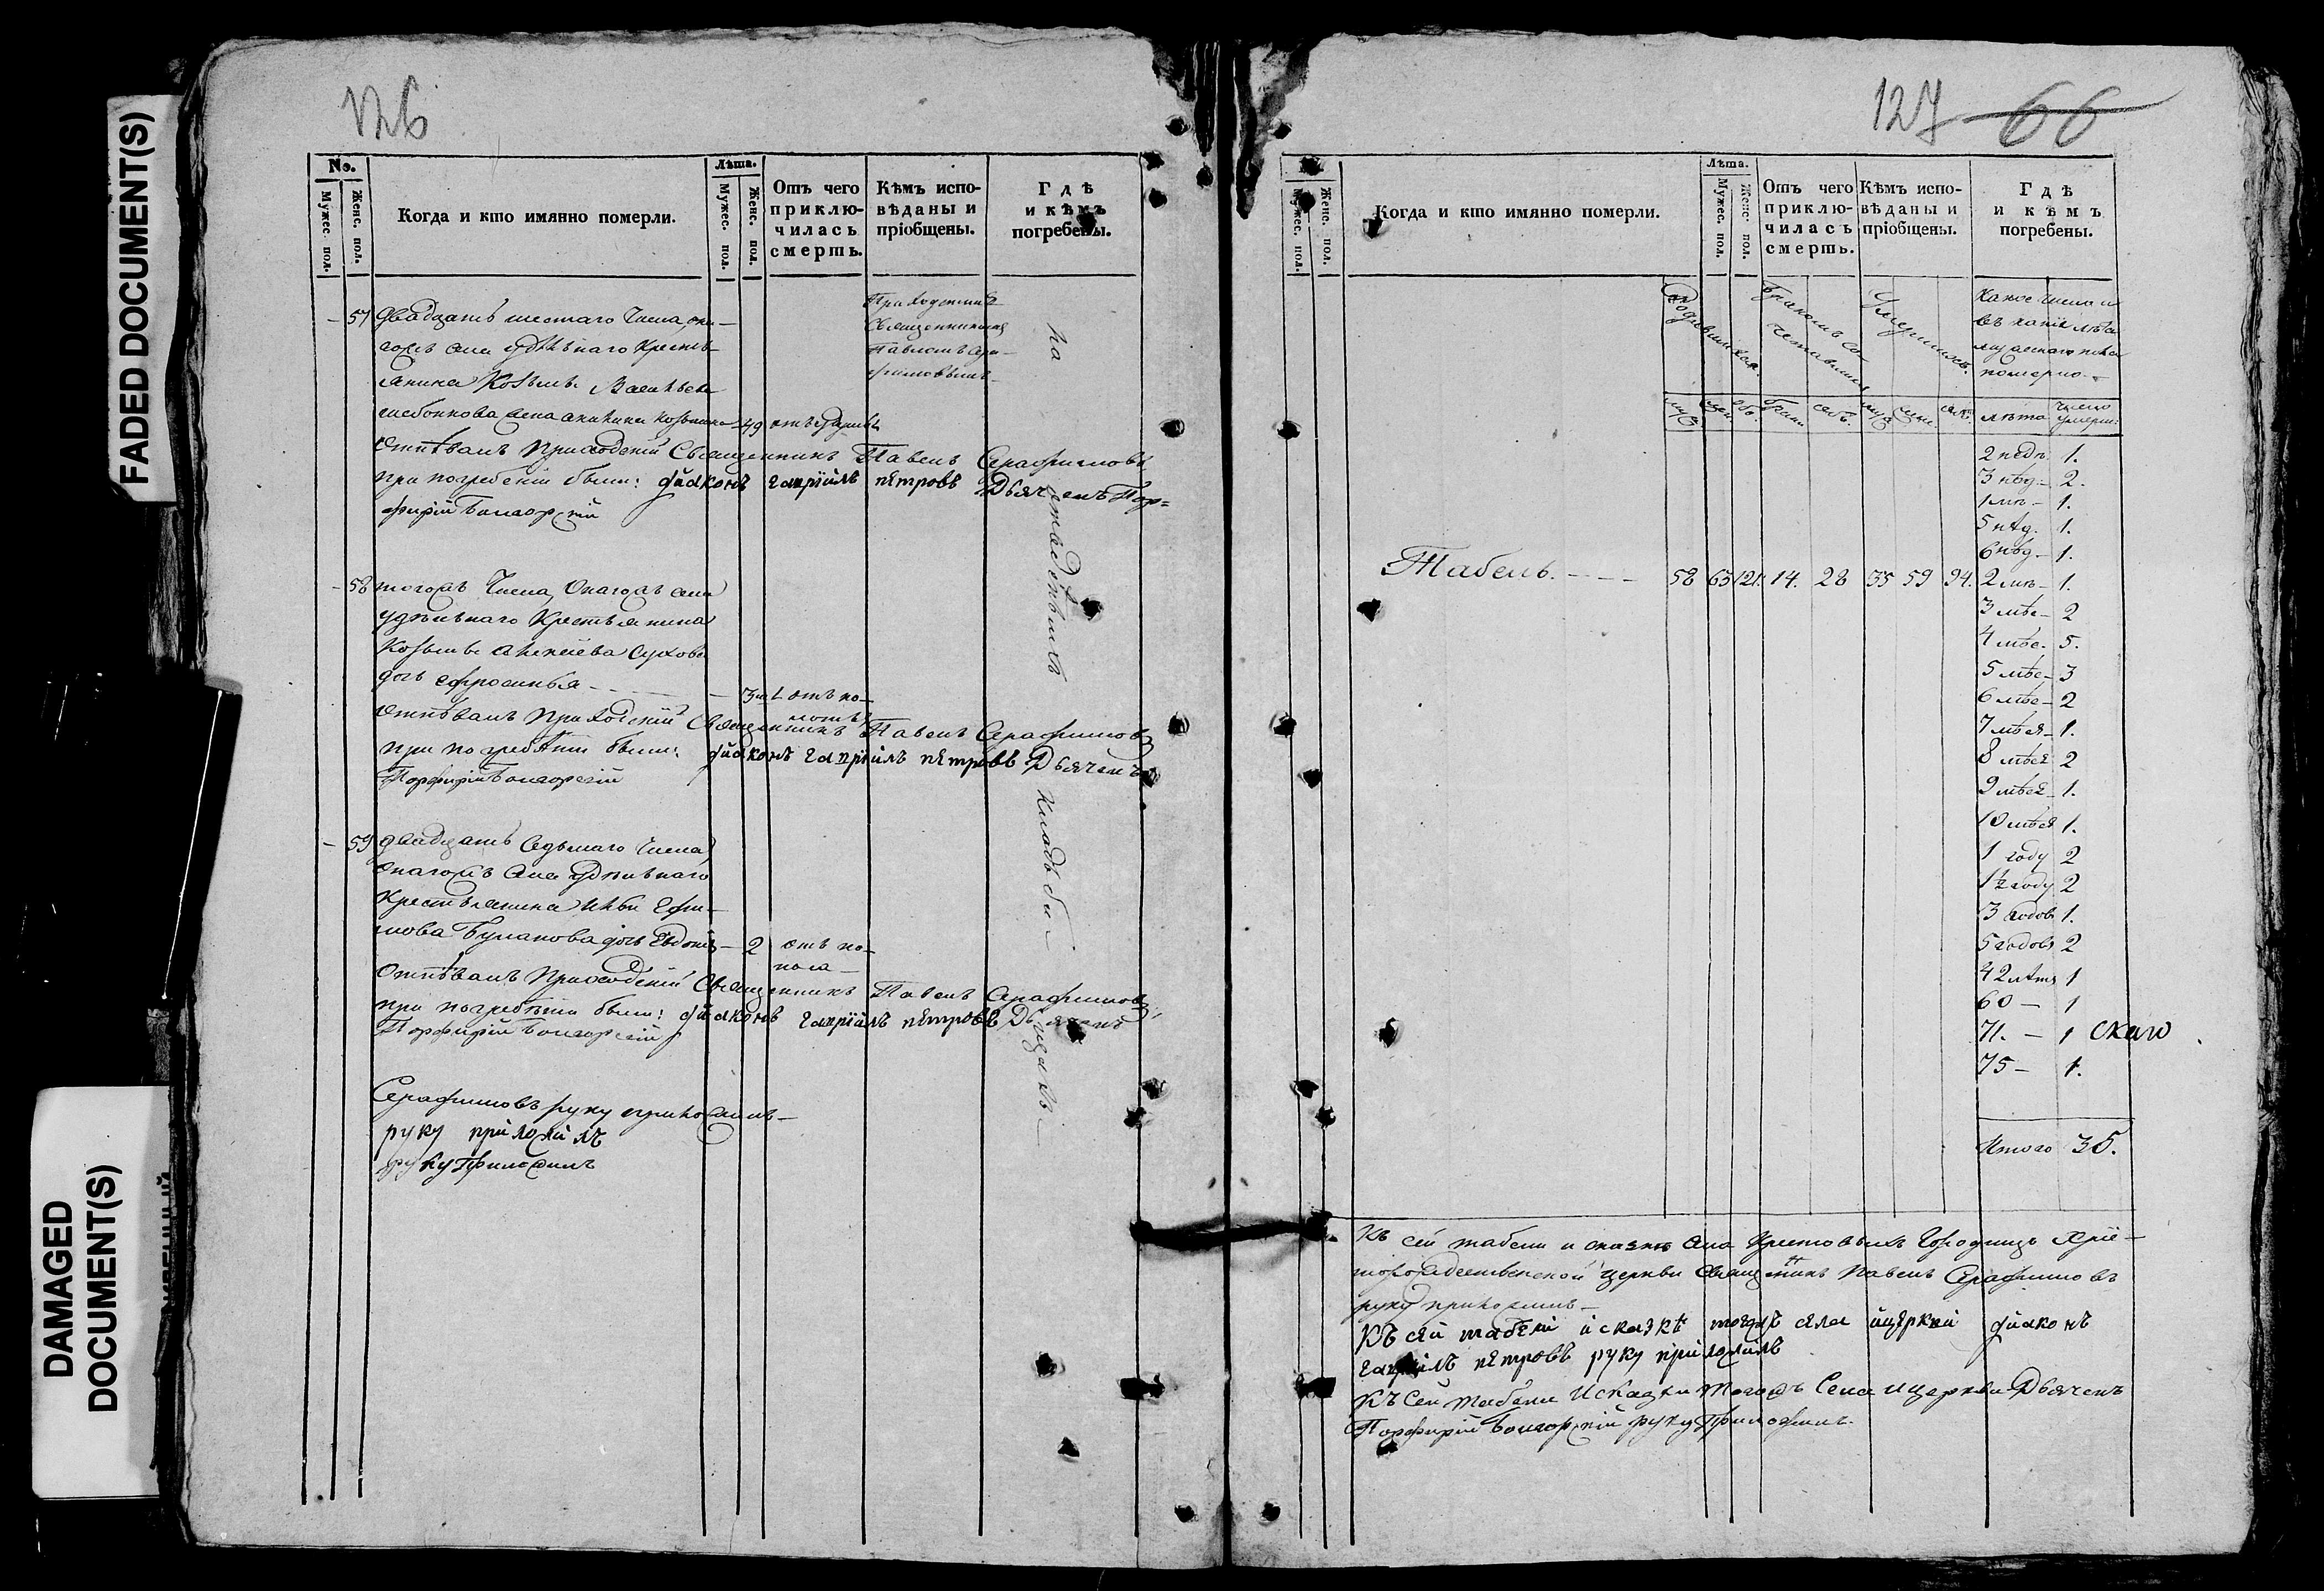 FADED DOCUMENT(S)
DAMAGED
DOCUMENT(S)
126
No.
Мужес. пол.
Женс. пол.
Когда и кто имянно померли.
Лѣта.
Мужес. пол.
Женс. пол.
Отъ чего
приклю-
чилась
смерть.
Кѣмъ испо-
вѣданы и
пріобщены.
Гдѣ
и кѣмъ
погребены.
57
двадцать шестаго числа, она-
гожъ села удѣльнаго крестъ-
янина Козьмы Васильева
жена
49
Приходскимъ
Священникомъ
Павломъ Сера-
фимовымъ
отпѣвалъ приходскій Священникъ Павелъ Серафимовъ
при погребеніи были: діаконъ гавріилъ петровъ Дьячекъ Пор=
фирій
58
тогожъ числа, онагожъ села
удѣльнаго крестьянина
Козьмы Алексѣева
дочь ефросинья
3 м.
отъ ко-
лотья
отпѣвалъ приходскій Священникъ Павелъ Серафимовъ
при погребеніи были: діаконъ гавріилъ петровъ Дьячекъ
Порфирій
59
двадцать седьмаго числа
онагожъ села удѣльнаго
крестьянина Ильи Ефи-
мова Буланова дочь Евдокія
2
отъ по-
носа
отпѣвалъ приходскій Священникъ Павелъ Серафимовъ
при погребеніи были: діаконъ гавріилъ петровъ Дьячекъ
Порфирій
на
кладьби-
щахъ
Серафимовъ руку приложилъ
руку приложилъ
руку Приложилъ
127 66
Мужес. пол.
Женс. пол.
Когда и кто имянно померли.
Лѣта.
Мужес. пол.
Женс. пол.
Отъ чего
приклю-
чилась
смерть.
Кѣмъ испо-
вѣданы и
пріобщены.
Гдѣ
и кѣмъ
погребены.
родившихся.
бракомъ со-
четавшихся
умершихъ.
какое число и
въ какія лѣта
мужескаго пола
померло
муж. жен. обо. брак. муж. жен. лѣта число умерш:
Табель. 58 63 121. 14. 28 35 59 94.
2 нед. 1.
3 нед. 2.
1 мѣ 1.
5 нед. 1.
6 нед. 1.
2 мѣ 1.
3 мѣс 2
4 мѣс. 5.
5 мѣс 3
6 мѣс 2
7 мѣся 1.
8 мѣся 2
9 мѣся 1.
10 мѣся 1.
1 году 2
1½ году 2
3 годов 1.
5 годовъ 2
42 лѣтъ 1
60 1
71. 1 скаго
75 1.
Итого 35.
Къ сей табели и сказкѣ села Крестовыхъ Городищъ Хри-
сторождественской церкви Священникъ Павелъ Серафимовъ
руку приложилъ
Къ сей табели и сказкѣ тогожъ села и церкви діаконъ
гавріилъ петровъ руку приложилъ
Къ Сей табели и Сказки тогожъ Села и церкви Дьячекъ
Порфирій руку Приложилъ.